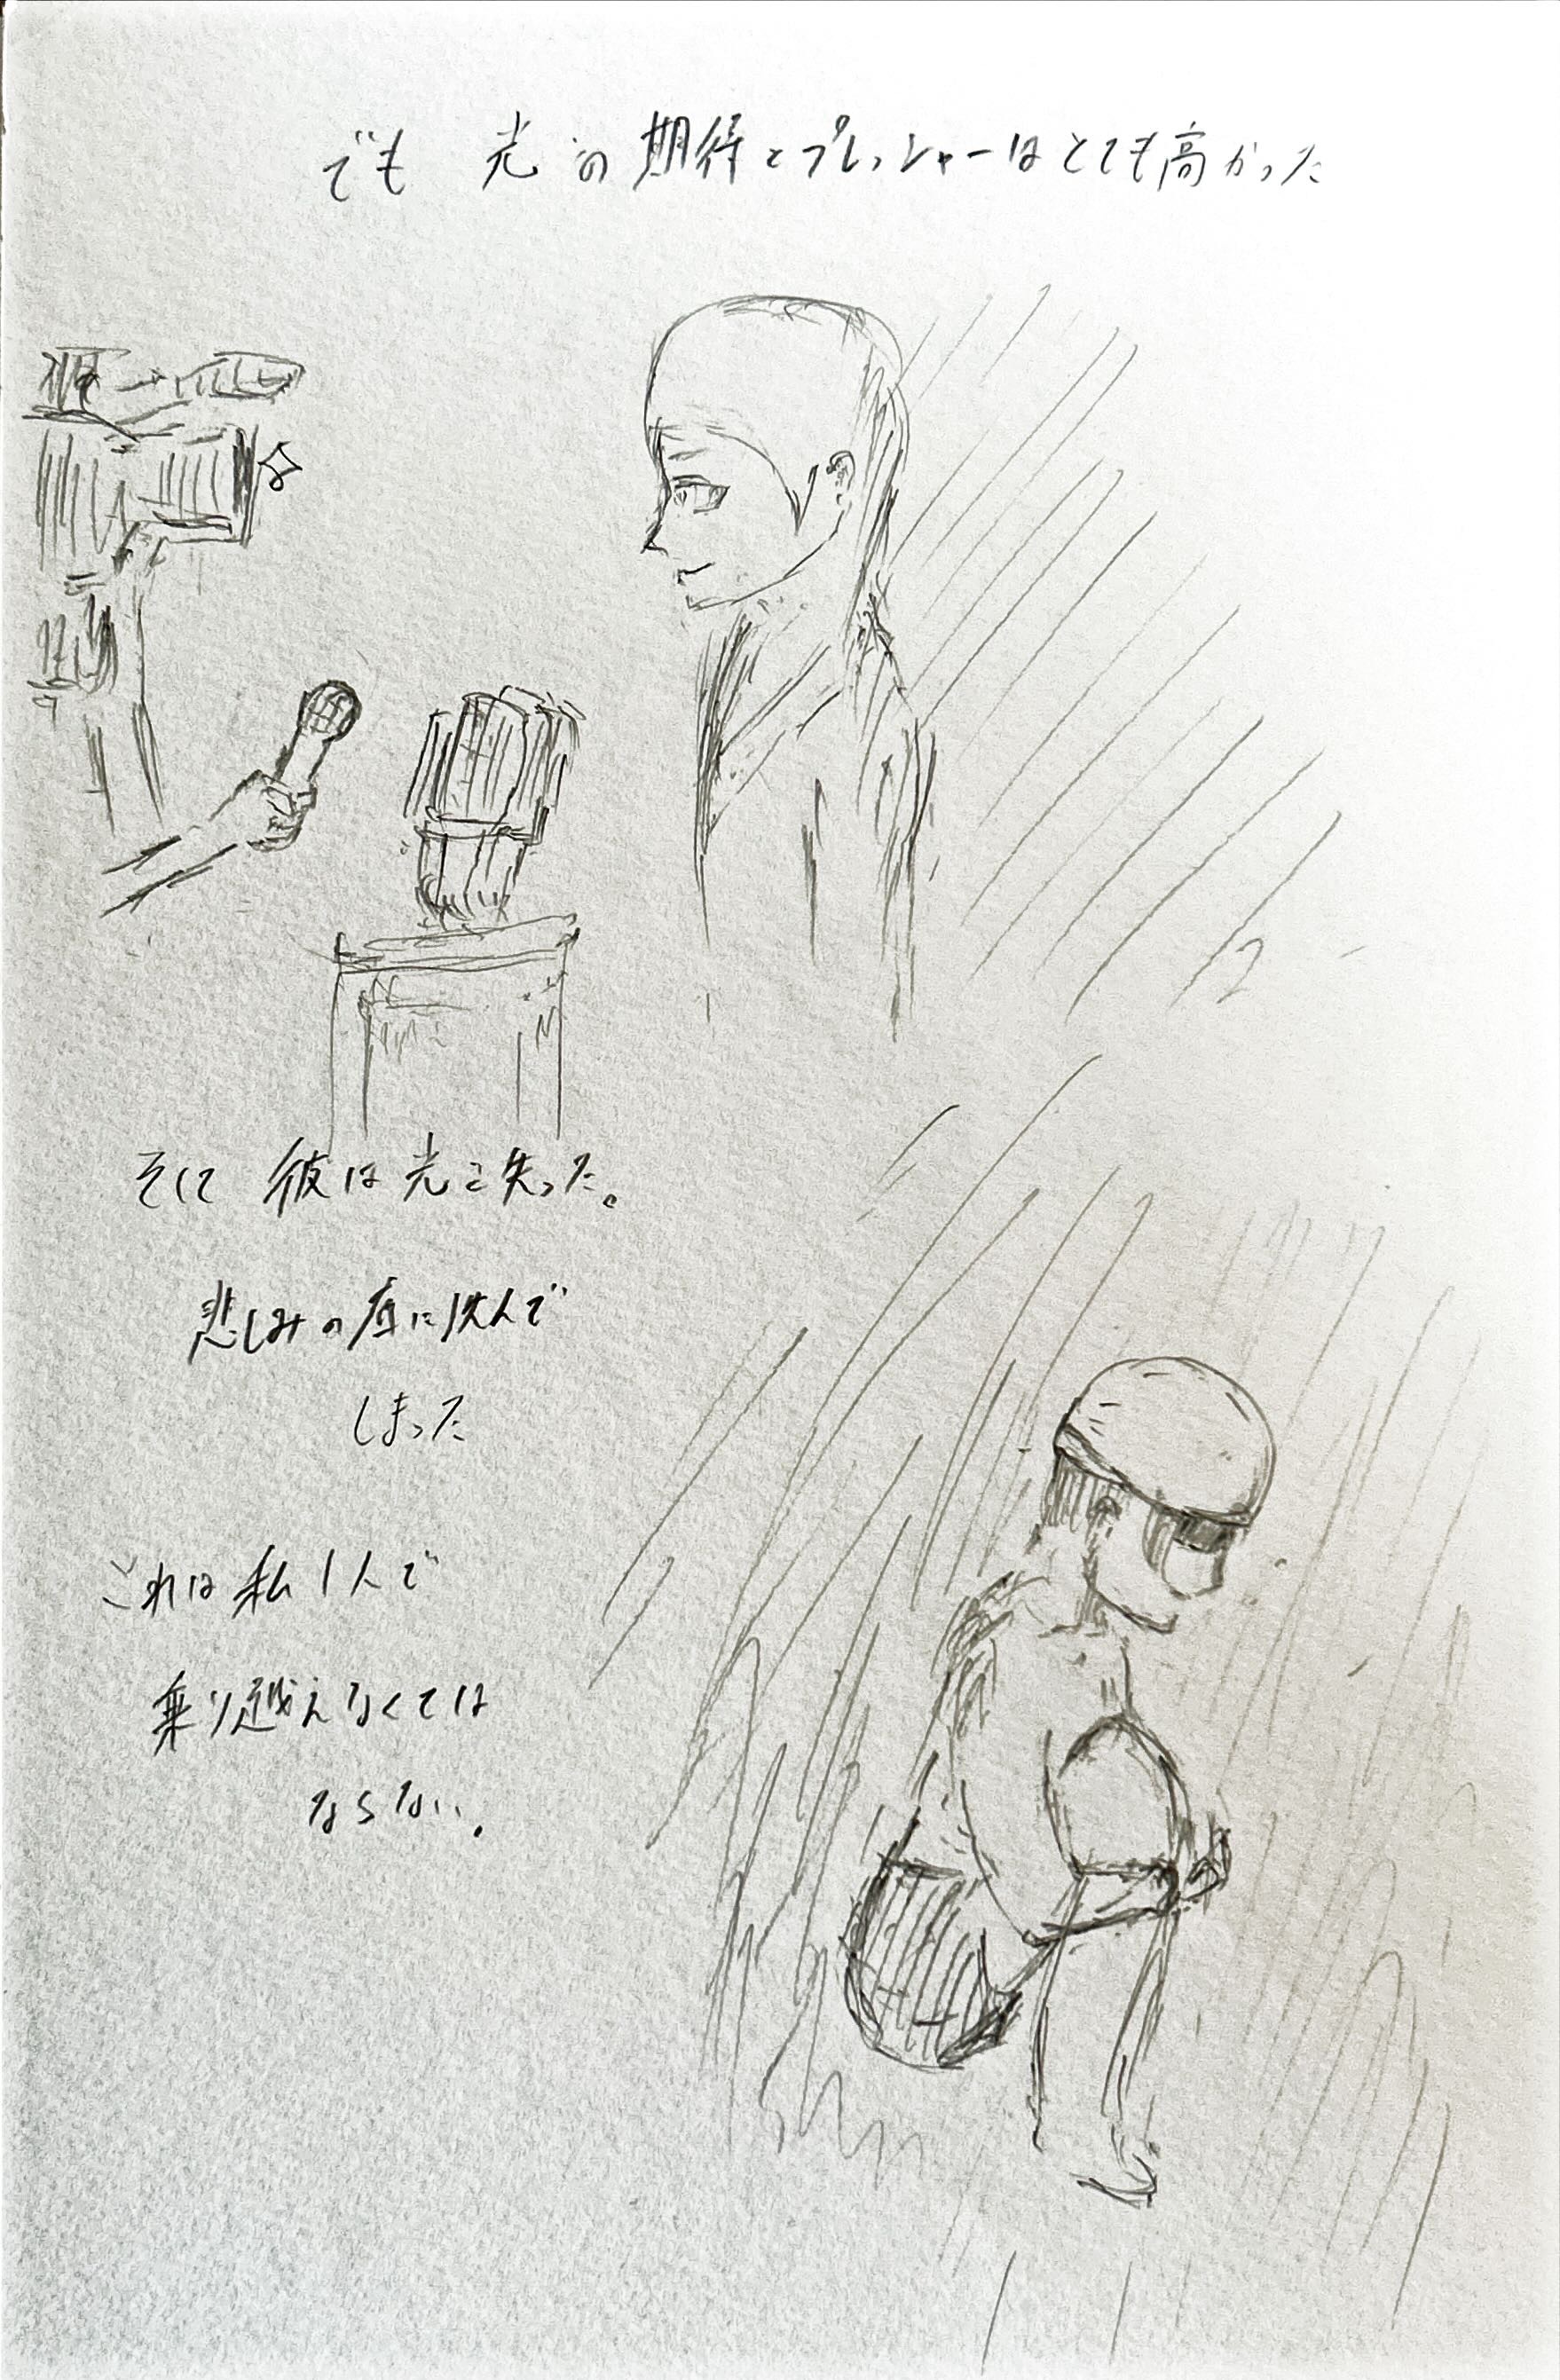 でも 光の期待とプレッシャーはとても高かった
そして 彼は光を失った。
悲しみの底に沈んで
しまった
これは私1人で
乗り越えなくては
ならない.